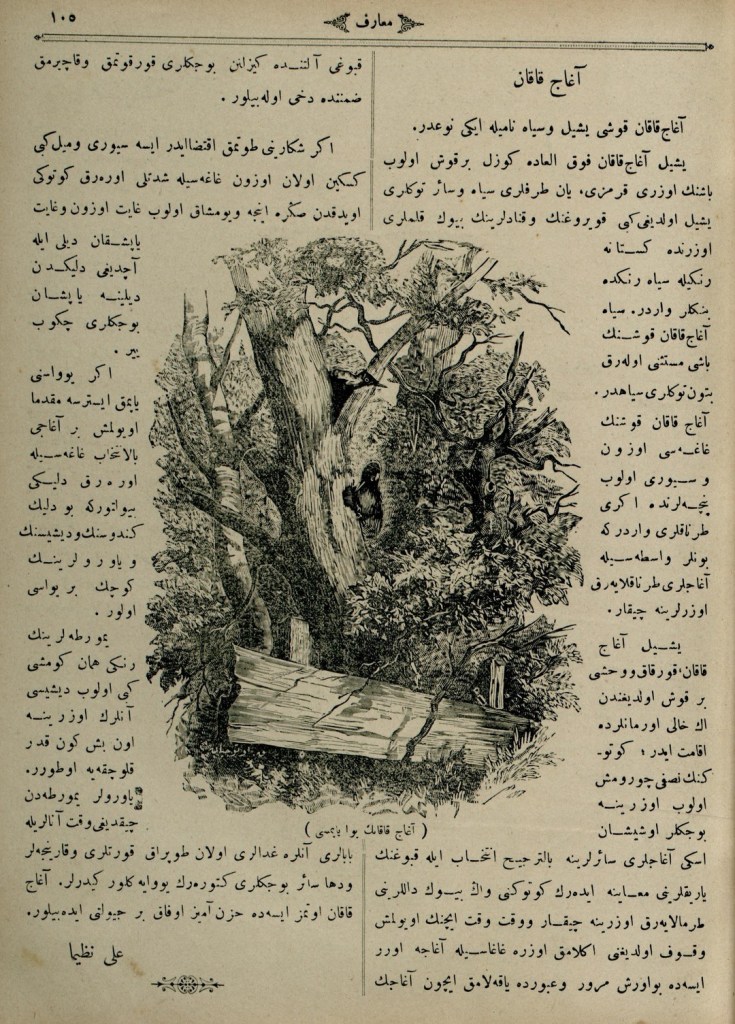 ١٠٥
معارف
آغاج قاقان
آغاج قاقان قوشی یشیل وسیاه نامیله ایکی نوعدر.
یشیل آغاج قاقان فوق العاده کوزل برقوش اولوب
باشنك اوزری قرمزی، یان طرفلری سیاه وسائر توکلری
یشیل اولدیغی کبی قویروغنك وقنادلرینك بیوك قلملری
اوزرنده کستانه
رنکیله سیاه رنکده
بنکلر واردر. سیاه
آغاج قاقان قوشنك
باشی مستثنی اوله رق
بتون توکلری سیاهدر.
آغاج قاقان قوشنك
غاغه سی اوزون
وسیوری اولوب
پنجه لرنده اکری
طرناقلری واردرکه
بونلر واسطه سیله
آغاجلری طرناقلایه رق
اوزرلرینه چیقار.
یشیل آغاج
قاقان، قورقاق ووحشی
بر قوش اولدیغندن
اك خالی اورمانلرده
اقامت ایدر؛ کوتو-
کنك نصفی چورومش
اولوب اوزرینه
بوجکلر اوشیشان
اسکی آغاجلری سائرلرینه بالترجیح انتخاب ایله قبوغنك
یاریقلرینی معاینه ایده رك کوتوکنی واك بیوك داللرینی
طرمالایه رق اوزرینه چیقار ووقت وقت ایچنك اویولمش
وقوف اولدیغنی اکلامق اوزره غاغاسیله آغاجه اورر
ایسه ده بواورش مرور وعبورده یاقه لامق ایچون آغاجك
قبوغی آلتنده کیزلنن بوجکلری قورقوتمق وقاچیرمق
ضمننده دخی اوله بیلور.
اکر شکارینی طوتمق اقتضا ایدر ایسه سیوری ومیل کبی
کسکین اولان اوزون غاغه سیله شدتلی اوره رق کوتوکی
اویدقدن صکره اینجه ویومشاق اولوب غایت اوزون وغایت
یاپشقان دیلی ایله
آچدیغی دلیکدن
دیلینه یاپشان
بوجکلری چکوب
ییر.
اکر یوواسنی
یاپمق ایسترسه مقدما
اویولمش بر آغاجی
بالانتخاب غاغه سیله
اوره رق دلیکی
بیولتورکه بو دلیك
کندوسنك ودیشیسنك
ویاورولرینك
کوچك بر یواسی
اولور.
یمورطه لرینك
رنکی همان کومشی
کبی اولوب دیشیسی
آنلرك اوزرینه
اون بش کون قدر
قلوچقه یه اوطورر.
یاورولر یمورطه دن
چیقدیغی وقت آنالریله
بابالری آنلره غدالری اولان طوپراق قورتلری وقارینجه لر
ودها سائر بوجکلری کتوره رك یووایه کلور کیدرلر. آغاج
قاقان اوتمز ایسه ده حزن آمیز اوفاق بر جیولتی ایده بیلور.
علی نظیما
( آغاج قاقانك یوا یاپمسی )